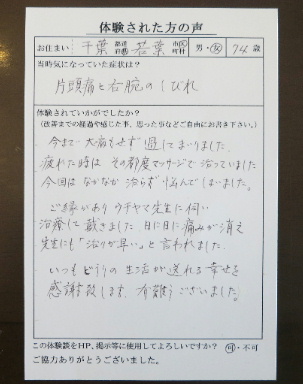 体験された方の声
お住まい 千葉 都道府県 若葉 市区町村 男・女 74 歳
当時気になっていた症状は?
片頭痛と右腕のしびれ
体験されていかがでしたか?
(改善までの経過や感じた事、思った事などご自由にお書き下さい。)
今まで大病もせず過してまいりました。
疲れた時は その都度マッサージで治っていました
今回はなかなか治らず悩んでしまいました。
ご縁があり 先生に伺い
治療して戴きました 日に日に痛みが消え
先生にも「治りが早い」と言われました。
いつもどうりの生活が送れる幸せを
感謝致します。有難うございました。
この体験談をHP、掲示等に使用してよろしいですか? 可・不可
ご協力ありがとうございました。